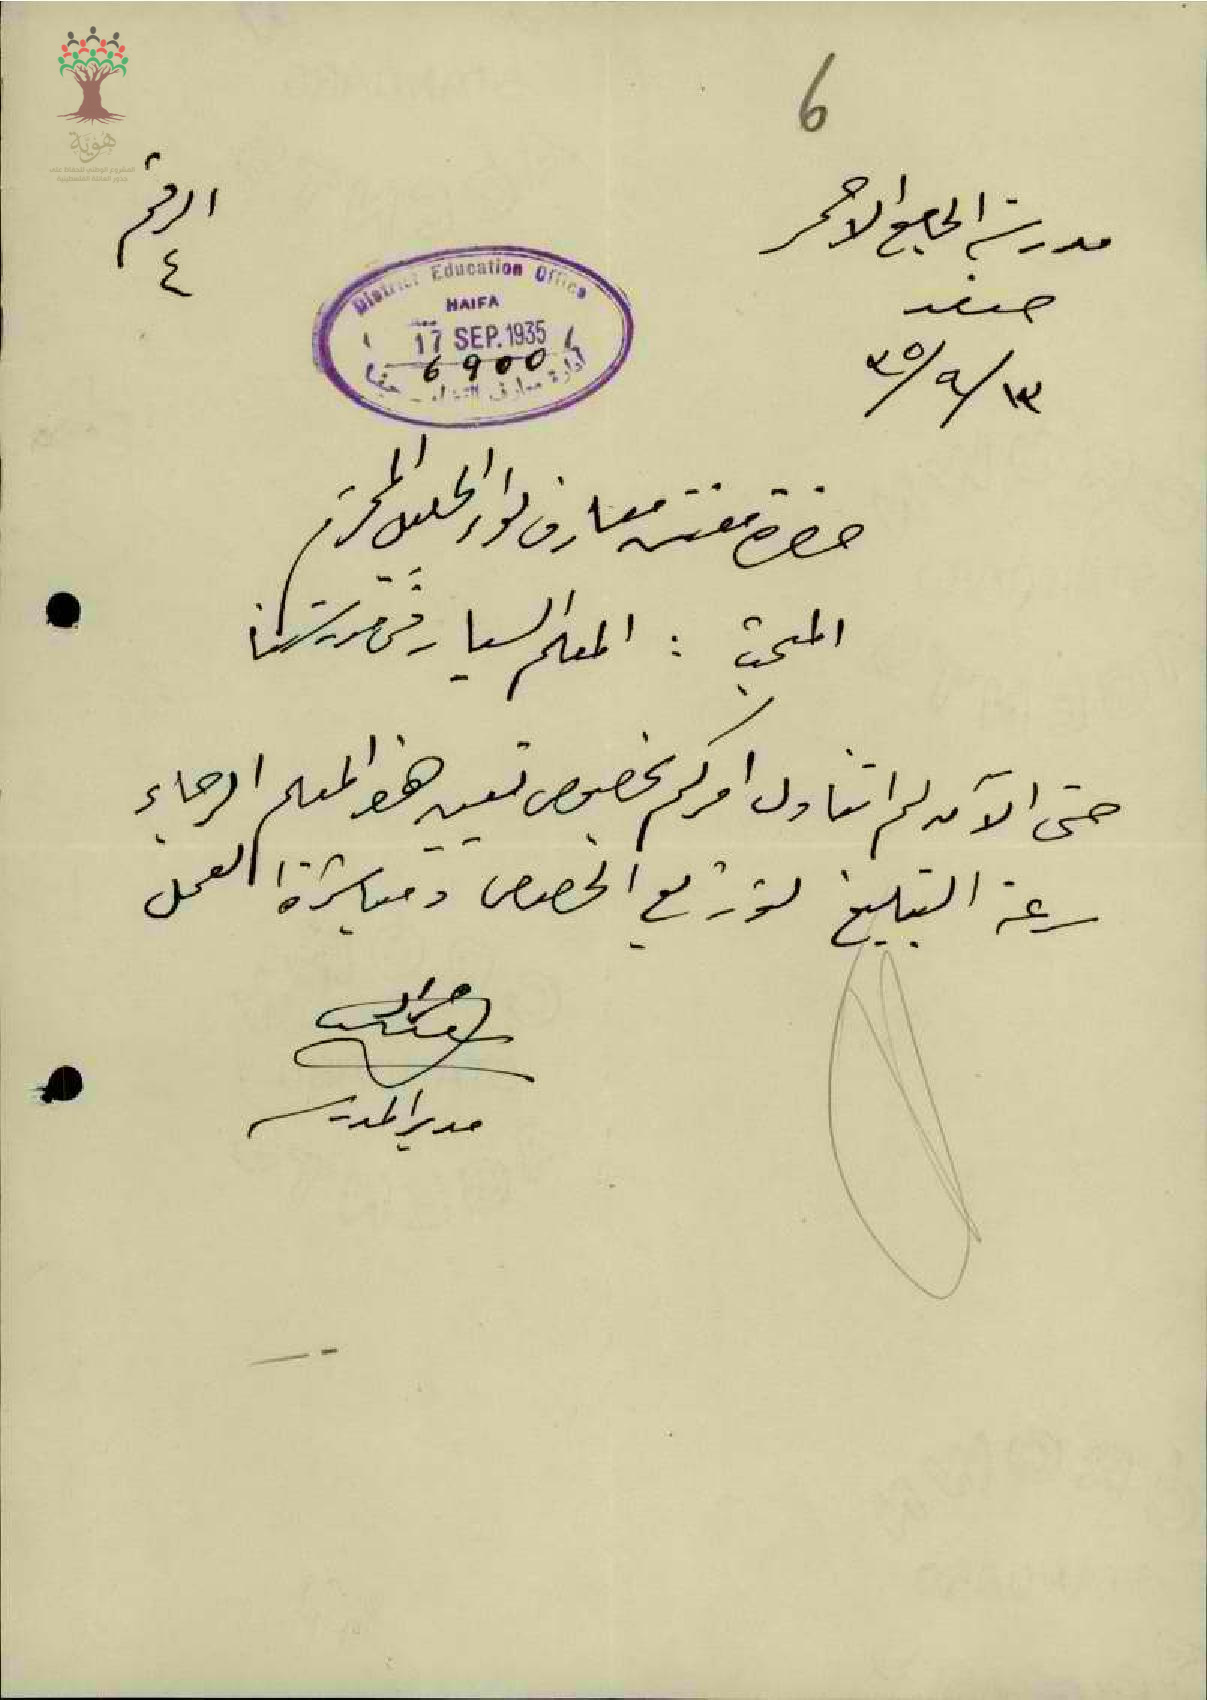 6
هُوِيَّة
المشروع الوطني للحفاظ على
جذور العائلة الفلسطينية
مدرسة الجامع الاحمر
صفد
١٣/٩/٣٥
الرقم
٤
District Education Office
HAIFA
17 SEP. 1935
6900
ادارة معارف اللواء حيفا
حضرة مفتش معارف لواء الجليل المحترم
المبحث : المعلم السيار في مدرستنا
حتى الآن لم اتناول امركم بخصوص تعيين هذا المعلم الرجاء
سرعة التبليغ لتوزيع الحصص ومباشرة العمل
مدير المدرسة